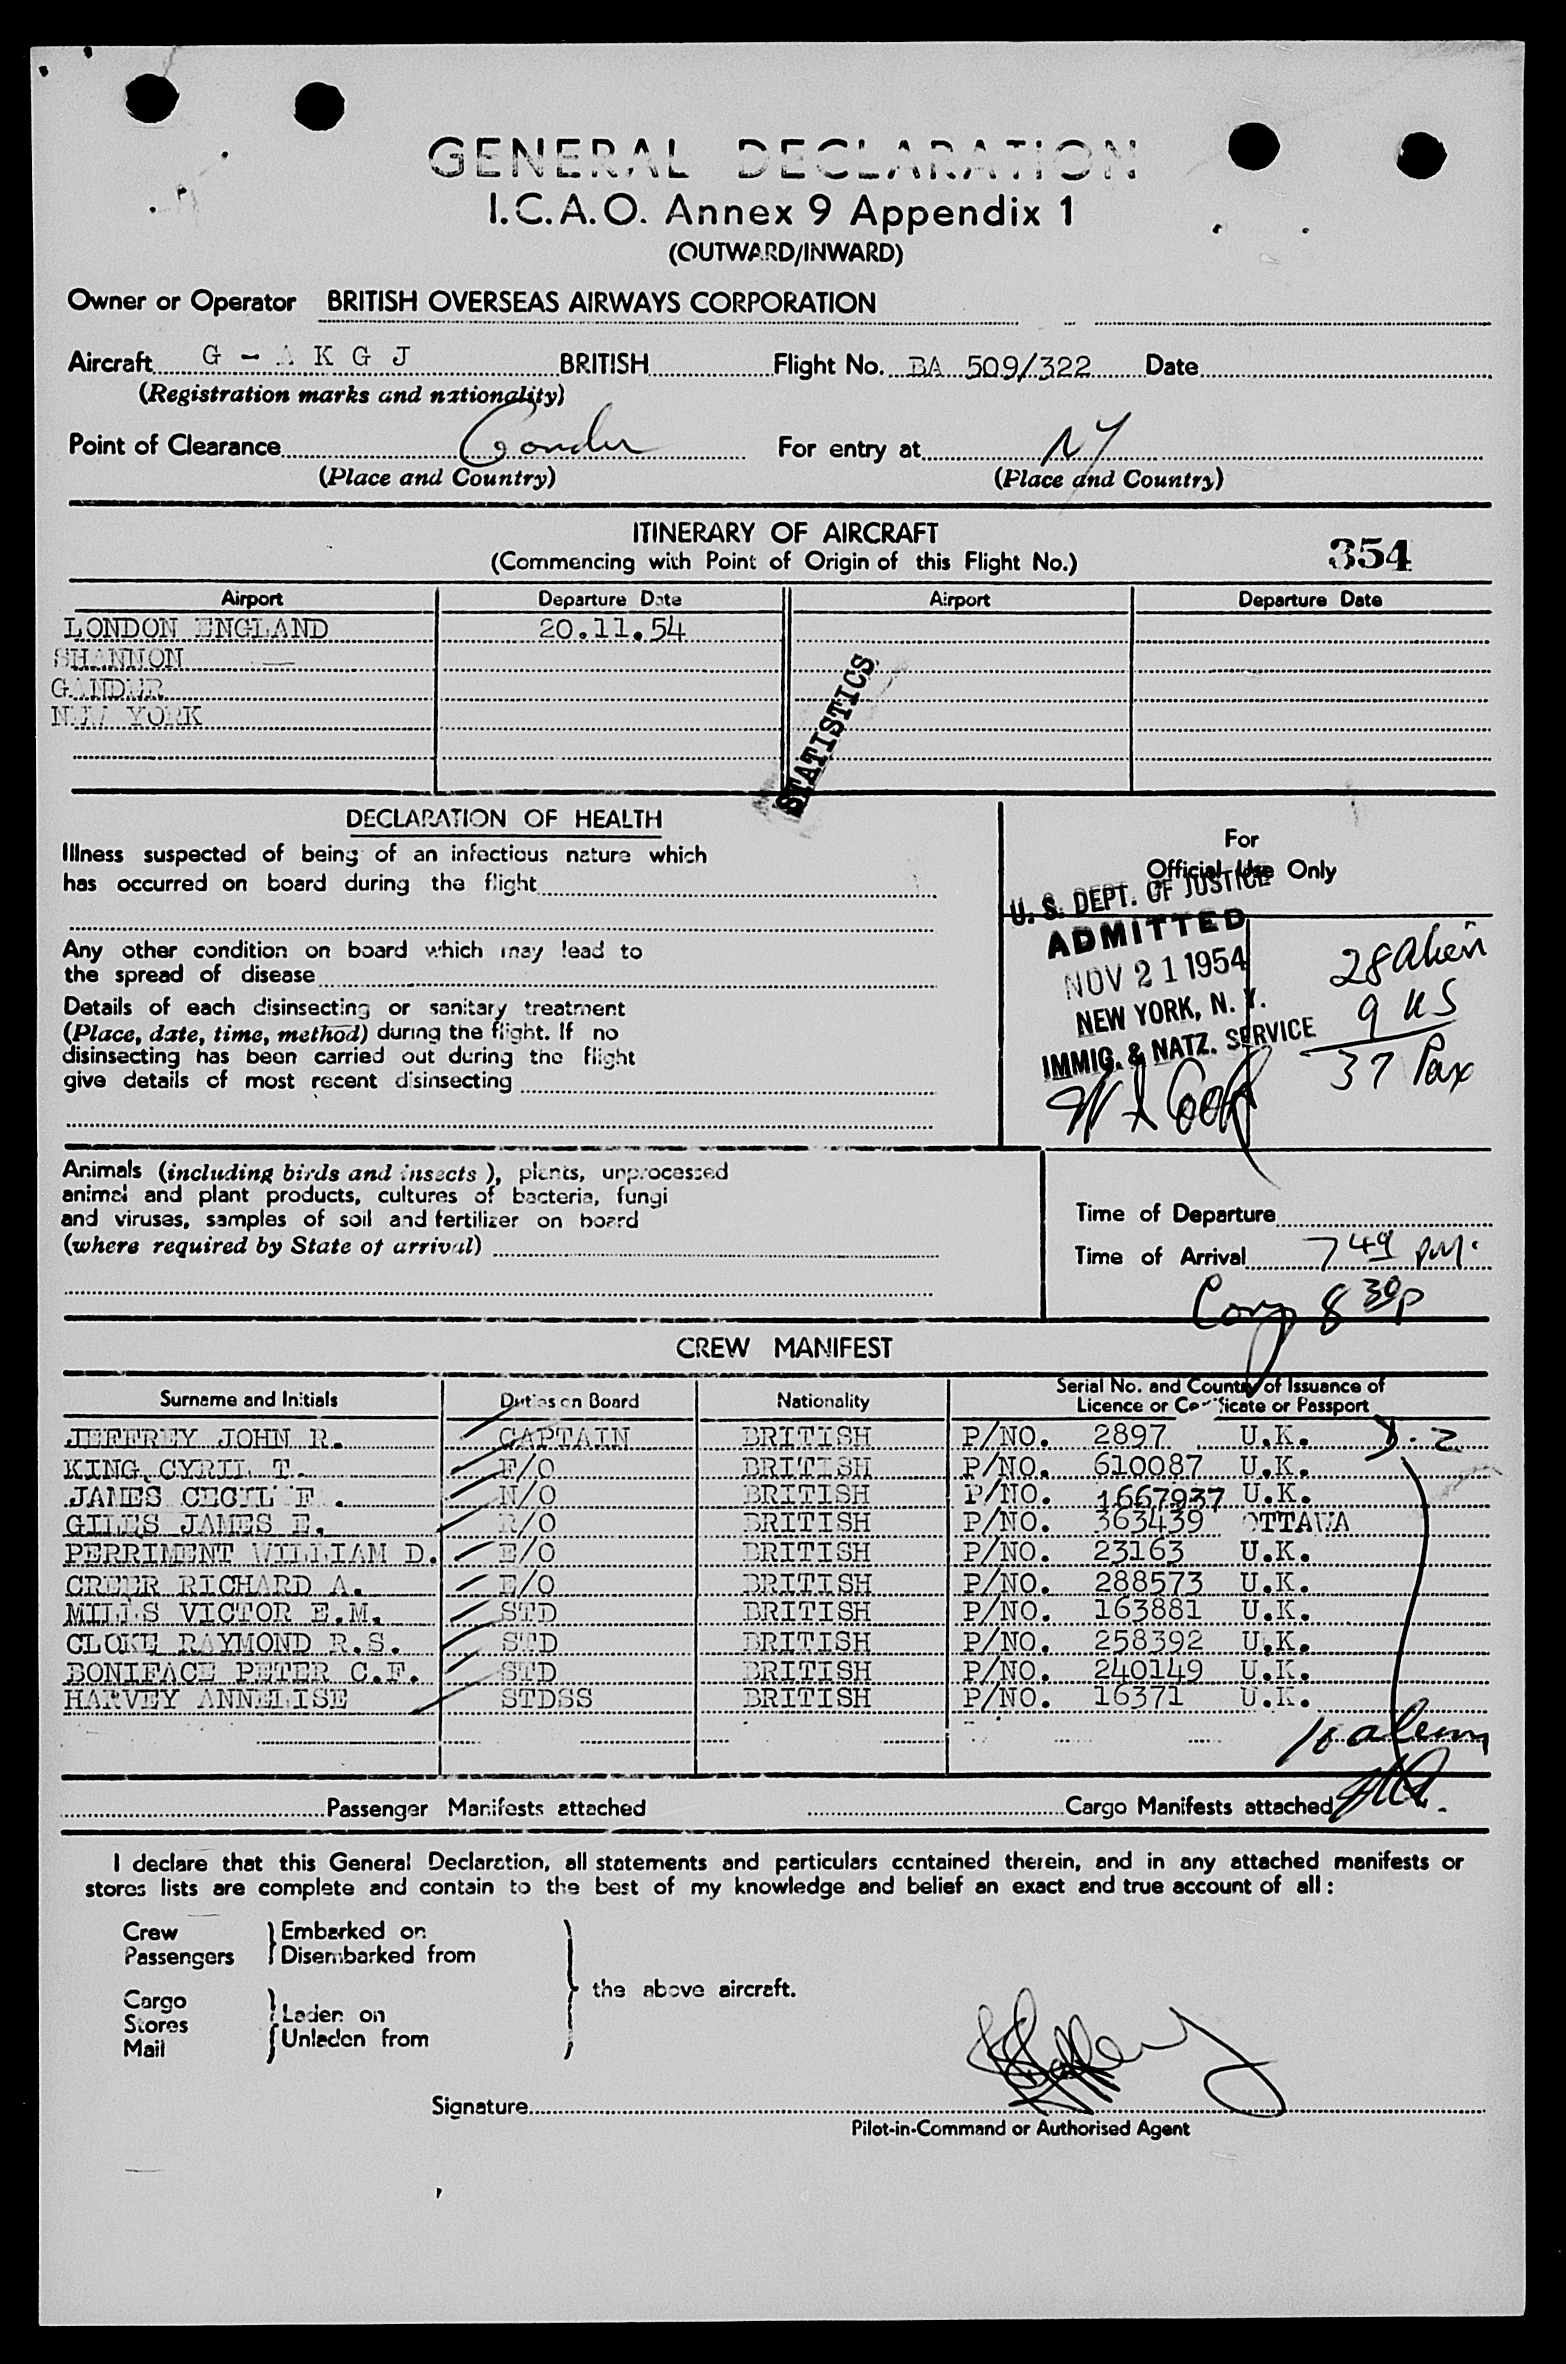 GENERAL DECLARATION
I.C.A.O. Annex 9 Appendix 1
(OUTWARD/INWARD)
Owner or Operator BRITISH OVERSEAS AIRWAYS CORPORATION
Aircraft G - A K G J BRITISH Flight No. BA 509/322 Date
(Registration marks and nationality)
Point of Clearance Gander For entry at NY
(Place and Country) (Place and Country)
ITINERARY OF AIRCRAFT
(Commencing with Point of Origin of this Flight No.) 354
Airport Departure Date Airport Departure Date
LONDON ENGLAND 20.11.54
SHANNON
GANDER
NEW YORK
STATISTICS
DECLARATION OF HEALTH
Illness suspected of being of an infectious nature which
has occurred on board during the flight
Any other condition on board which may lead to
the spread of disease
Details of each disinsecting or sanitary treatment
(Place, date, time, method) during the flight. If no
disinsecting has been carried out during the flight
give details of most recent disinsecting
For
Official Use Only
U. S. DEPT. OF JUSTICE
ADMITTED
NOV 21 1954
NEW YORK, N. Y.
IMMIG. & NATZ. SERVICE
28 alien
9 US
37 Pax
Animals (including birds and insects), plants, unprocessed
animal and plant products, cultures of bacteria, fungi
and viruses, samples of soil and fertilizer on board
(where required by State of arrival)
Time of Departure
Time of Arrival 7 49 PM.
8 30p
CREW MANIFEST
Surname and Initials Duties on Board Nationality Serial No. and Country of Issuance of
Licence or Certificate or Passport
JEFFREY JOHN R. CAPTAIN BRITISH P/NO. 2897 U.K.
KING CYRIL T. F/O BRITISH P/NO. 610087 U.K.
JAMES CECIL F. N/O BRITISH P/NO. 1667937 U.K.
GILES JAMES E. R/O BRITISH P/NO. 363439 OTTAWA
PERRIMENT WILLIAM D. E/O BRITISH P/NO. 23163 U.K.
GREER RICHARD A. E/O BRITISH P/NO. 288573 U.K.
MILLS VICTOR E.M. STD BRITISH P/NO. 163881 U.K.
CLOKE RAYMOND R.S. STD BRITISH P/NO. 258392 U.K.
BONIFACE PETER C.F. STD BRITISH P/NO. 240149 U.K.
HARVEY ANNELISE STDSS BRITISH P/NO. 16371 U.K.
10 aliens
Passenger Manifests attached Cargo Manifests attached
I declare that this General Declaration, all statements and particulars contained therein, and in any attached manifests or
stores lists are complete and contain to the best of my knowledge and belief an exact and true account of all:
Crew Embarked on
Passengers Disembarked from
the above aircraft.
Cargo
Stores Laden on
Mail Unladen from
Signature
Pilot-in-Command or Authorised Agent